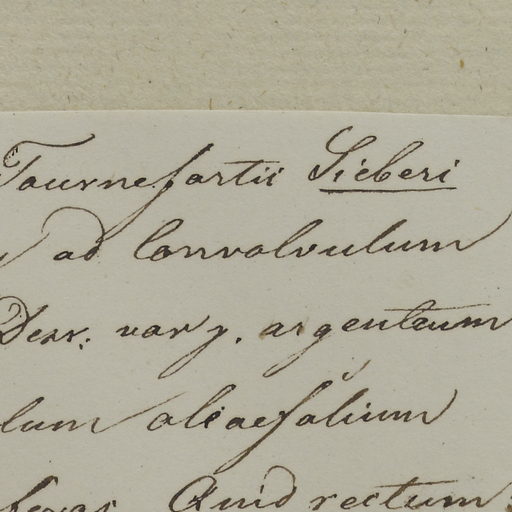 Tournefortii Sieberi
ad Convolvulum
Desr: var γ. argenteum
lum oleaefolium
Quid rectum